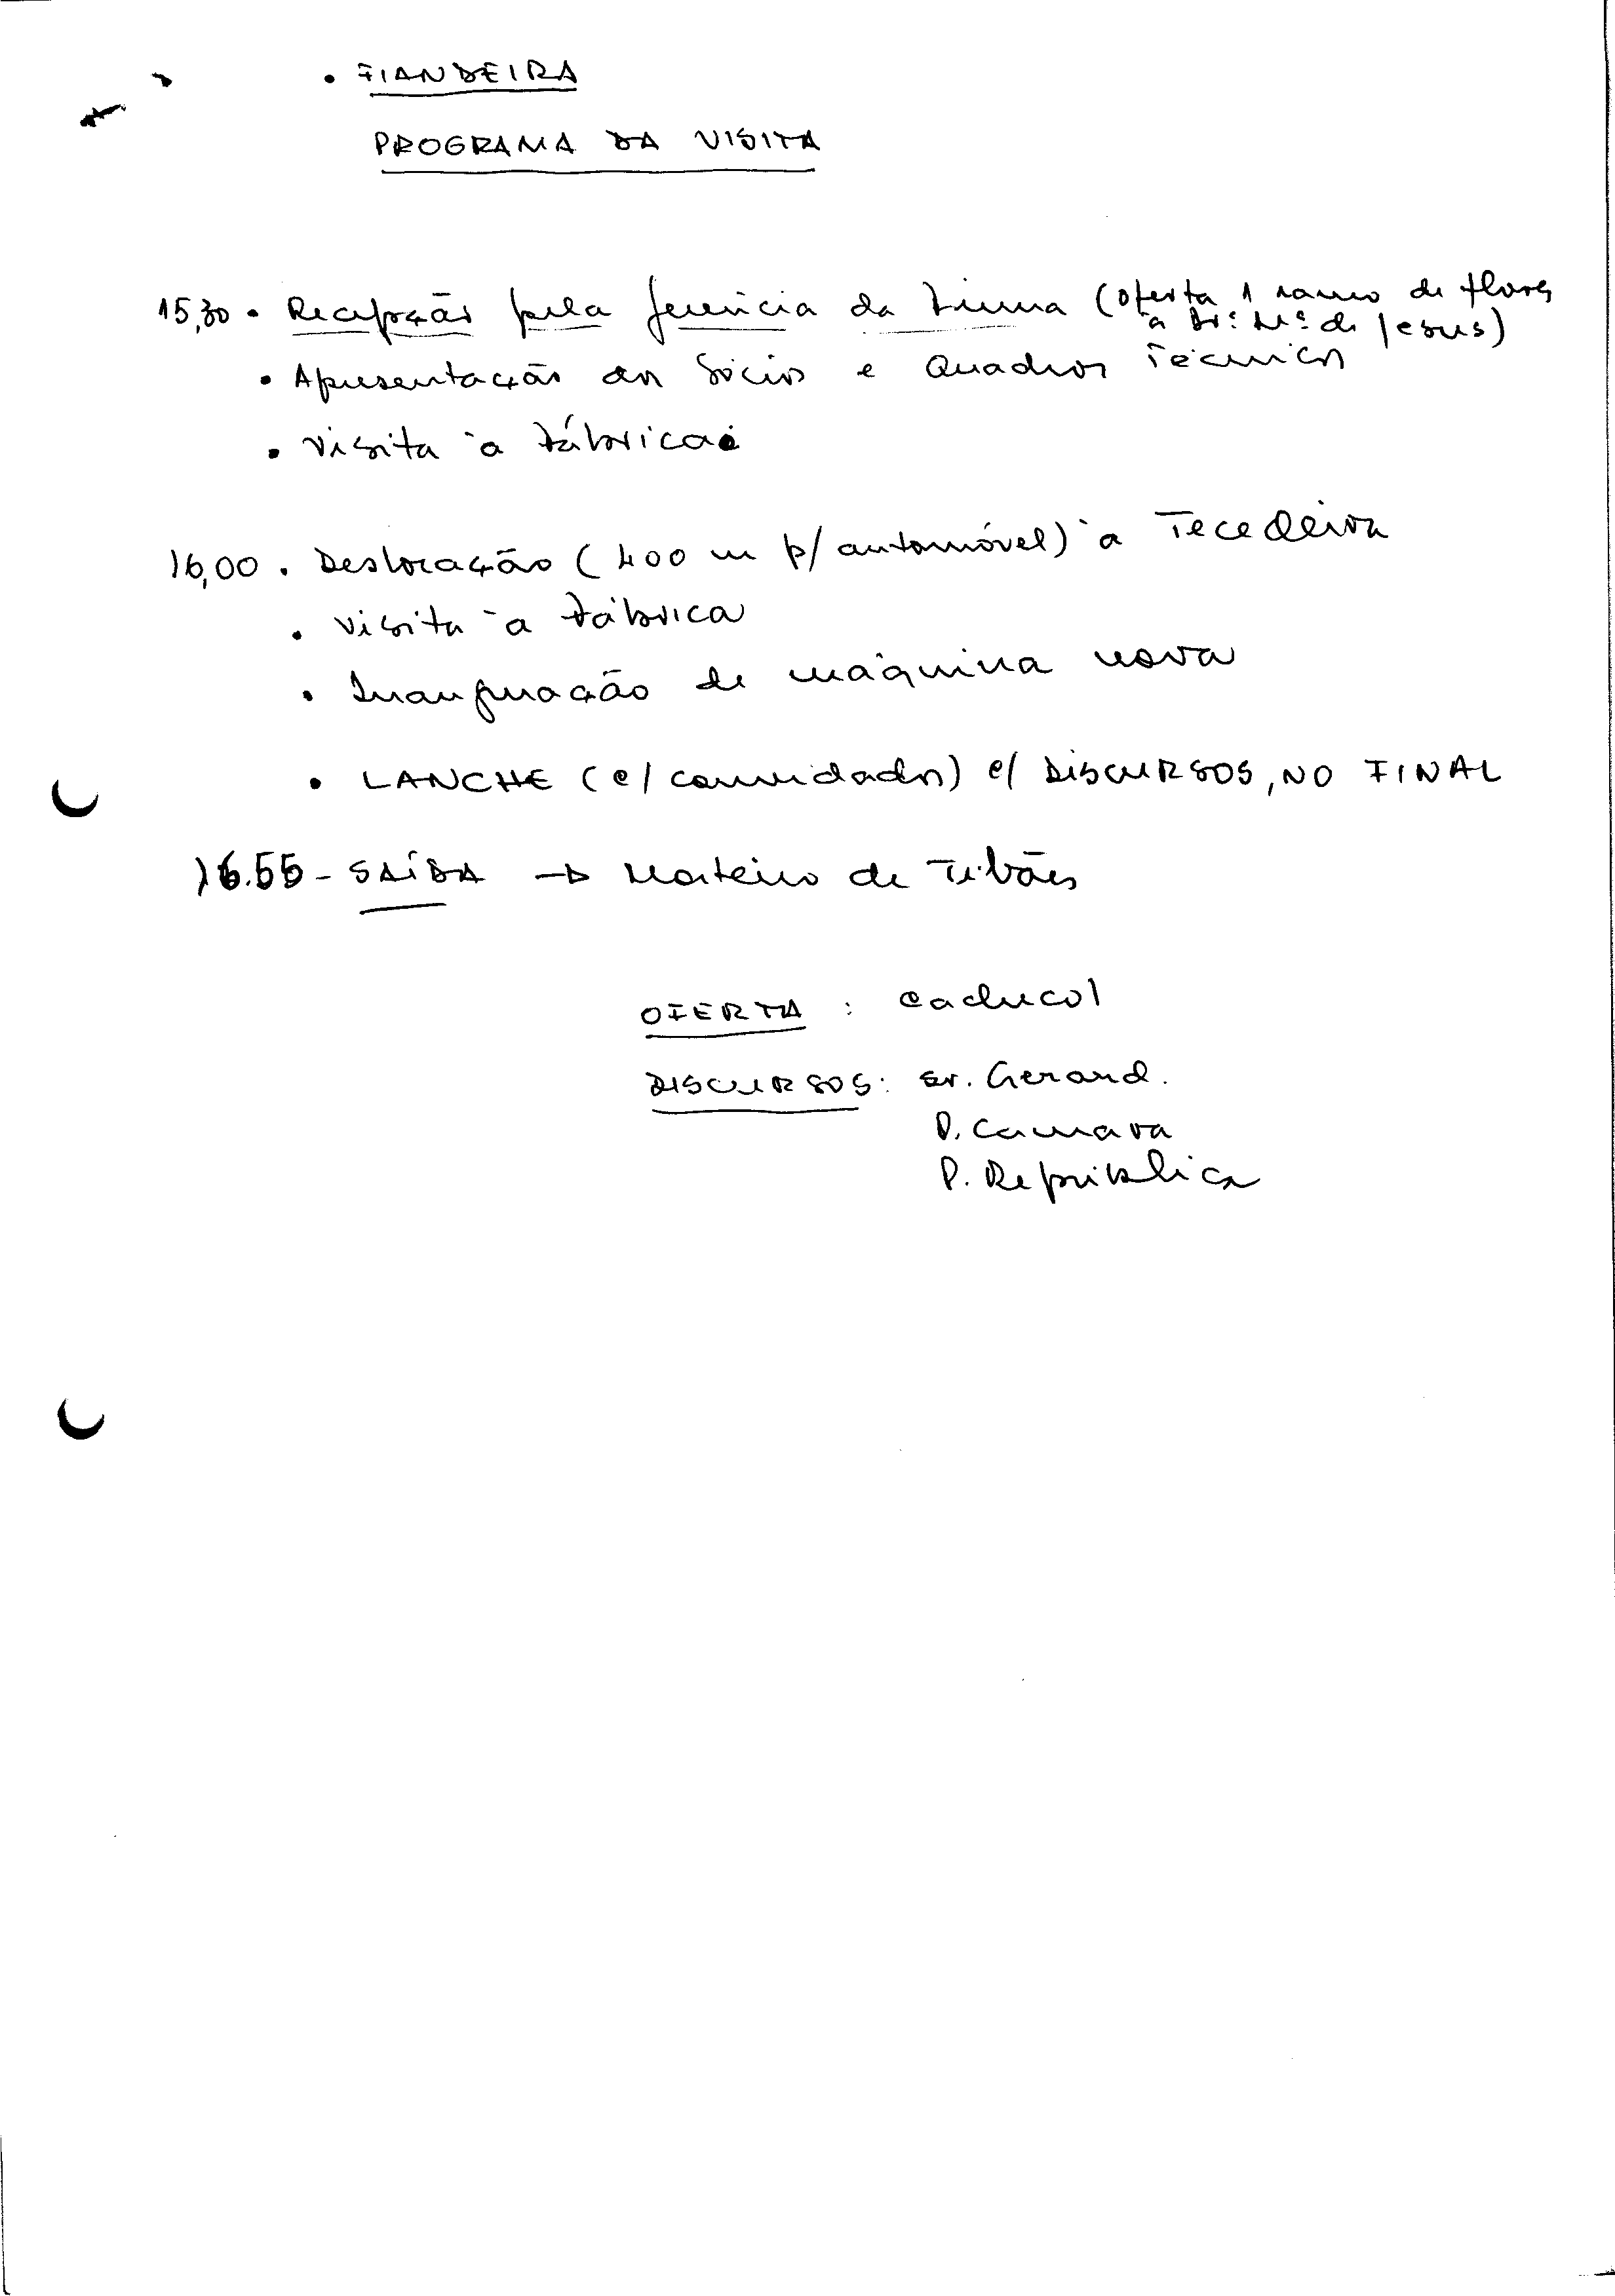 • FIANDEIRA
PROGRAMA DA VISITA
15,30 • Recepção pela gerência da Firma (oferta 1 ramo de flores
à Drª Mª de Jesus)
• Apresentação dos Sócios e Quadros Técnicos
• Visita à Fábrica
16,00 • Deslocação (400 m p/ automóvel) à Tecedeira
• Visita à Fábrica
• Inauguração de máquina nova
• LANCHE (c/ convidados) c/ DISCURSOS, NO FINAL
16.55 - SAÍDA → Mosteiro de Tibães
OFERTA : cachecol
DISCURSOS: Sr. Gerand.
P. Camara
P. República